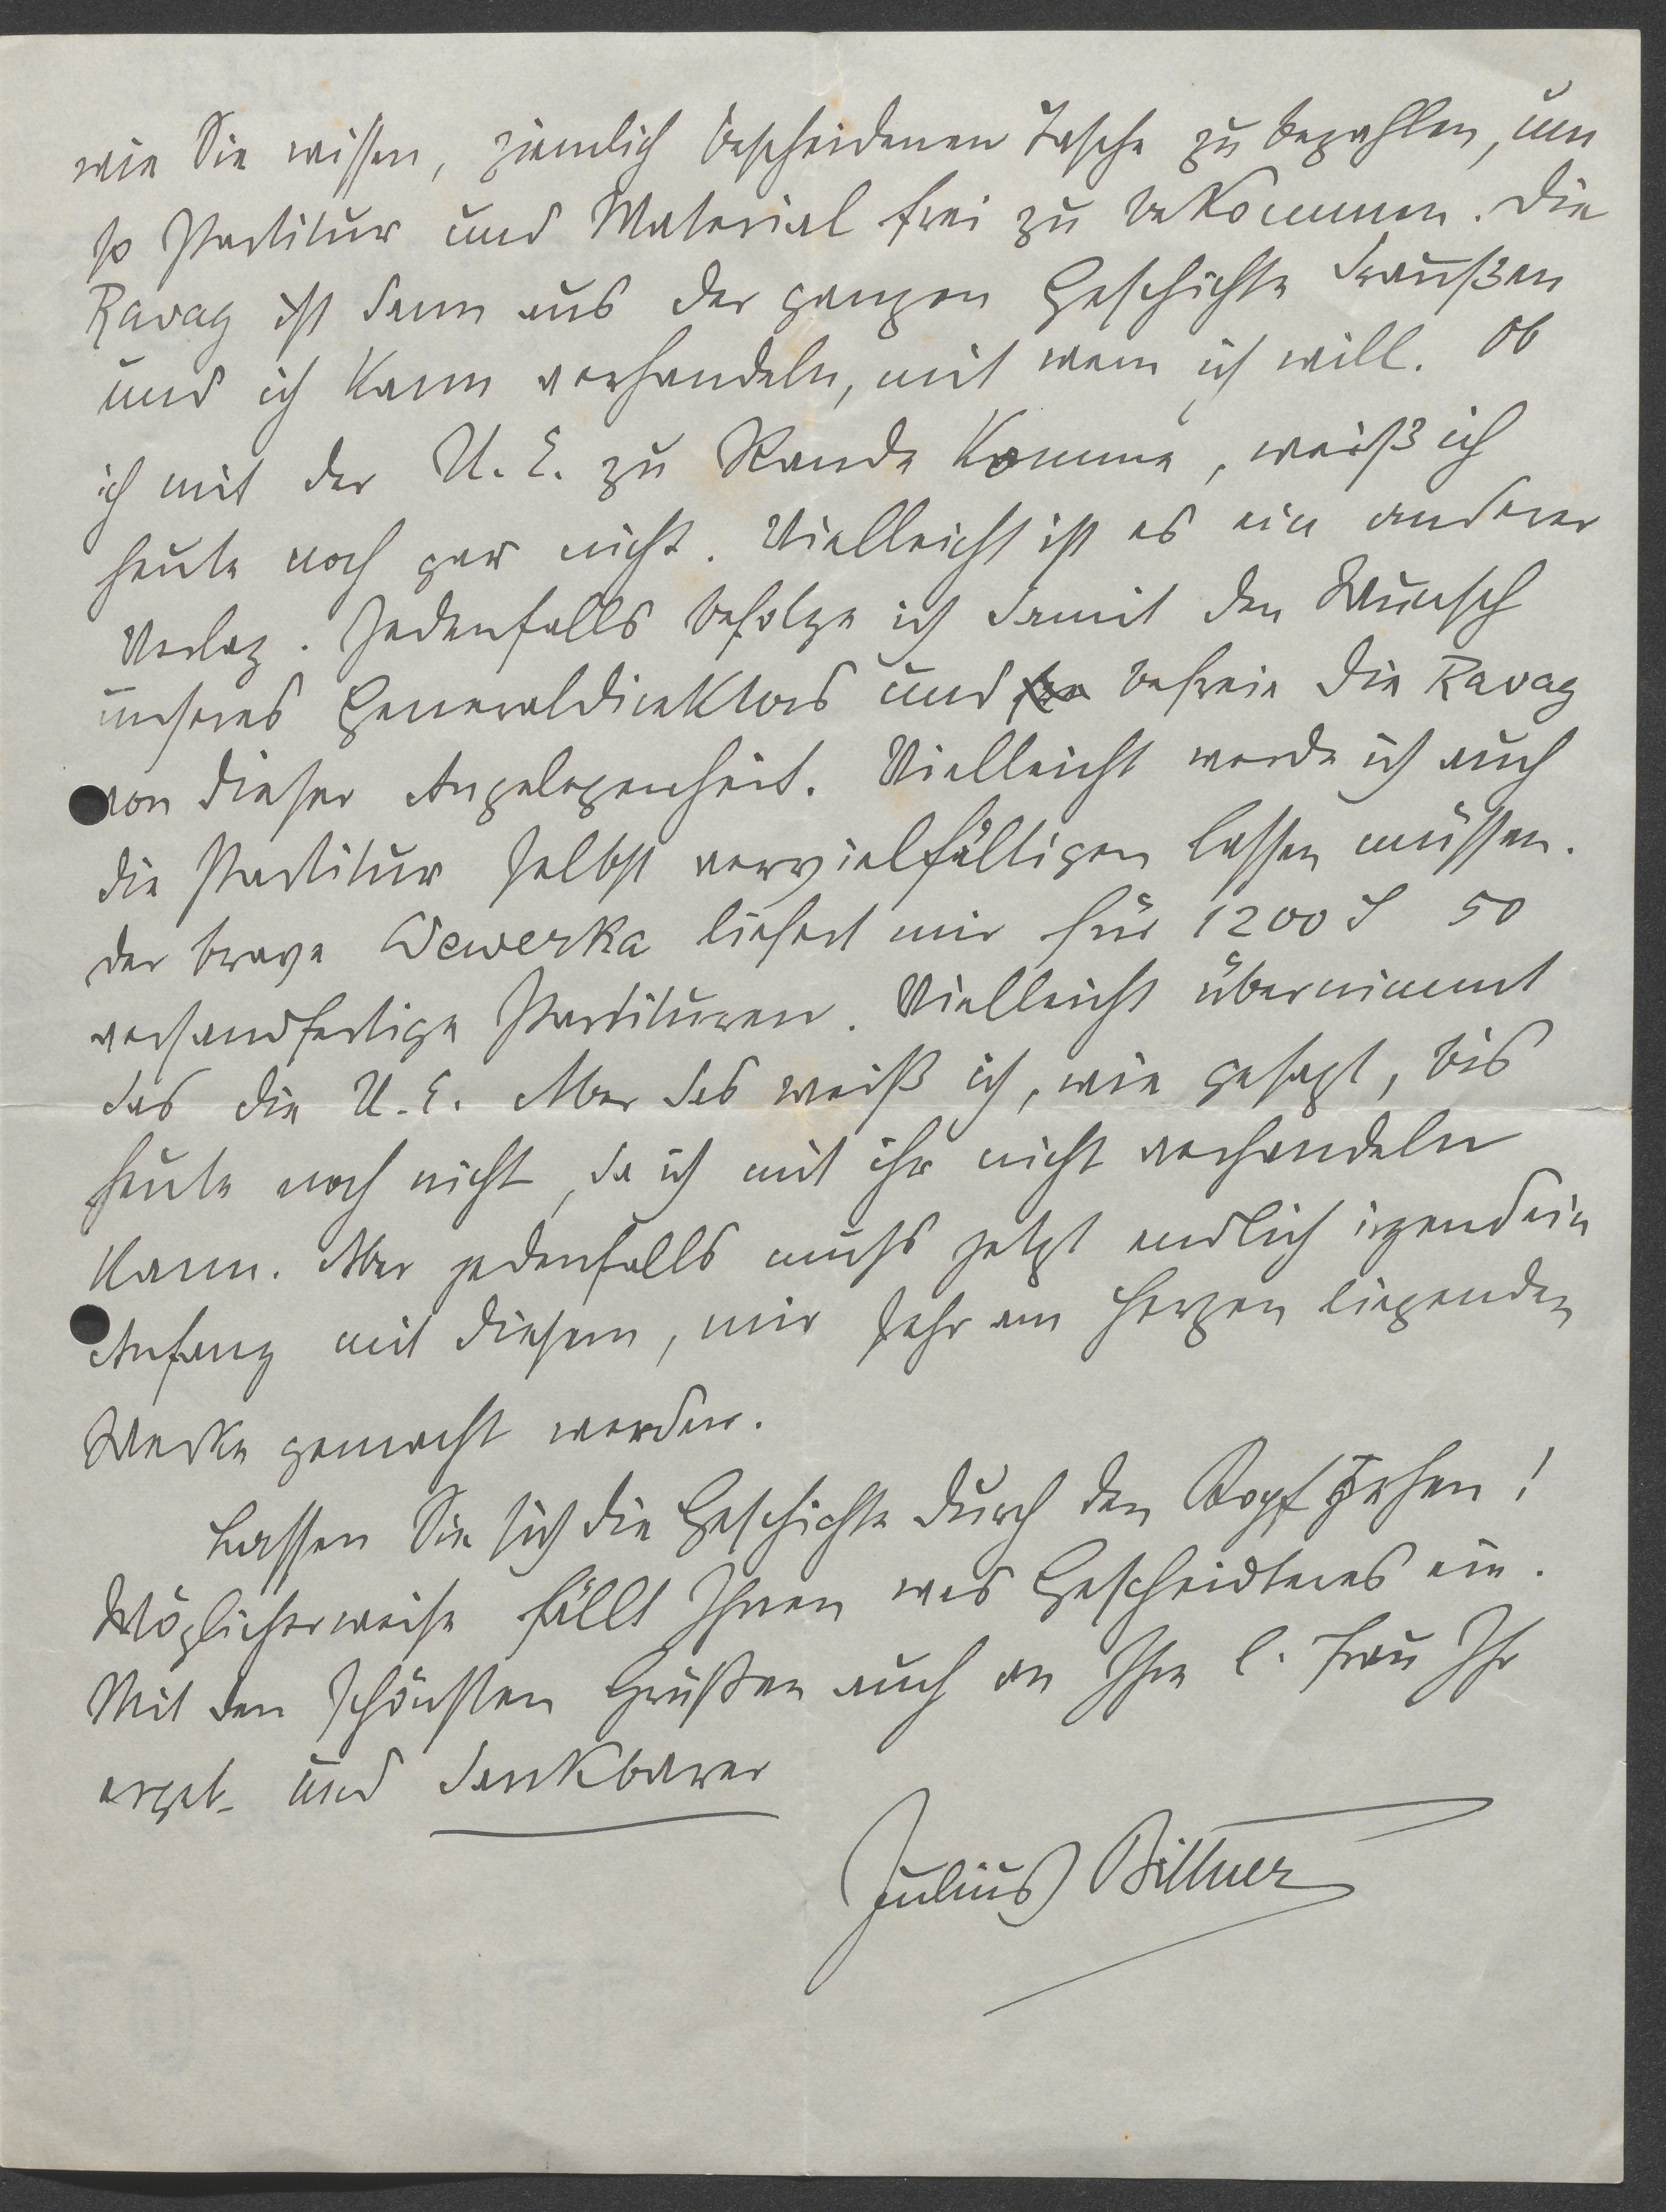 wie Sie wissen, ziemlich bescheidenen Tasche zu bezahlen, um
so Partitur und Material frei zu bekommen. Die
Ravag ist dann aus der ganzen Geschichte draußen
und ich kann verhandeln, mit wem ich will. Ob
ich mit der U. E. zu Rande komme, weiß ich
heute noch gar nicht. Vielleicht ist es ein anderer
Verlag. Jedenfalls befolge ich damit den Wunsch
unseres Generaldirektors und befreie die Ravag
von dieser Angelegenheit. Vielleicht werde ich auch
die Partitur selbst vervielfältigen lassen müssen.
Der brave Wewerka liefert mir für 1200 S 50
versandfertige Partituren. Vielleicht übernimmt
das die U. E. Aber das weiß ich, wie gesagt, bis
heute noch nicht, da ich mit ihr nicht verhandeln
kann. Aber jedenfalls muss jetzt endlich irgendein
Anfang mit diesem, mir sehr am Herzen liegenden
Werke gemacht werden.
Lassen Sie sich die Geschichte durch den Kopf gehen!
Möglicherweise fällt Ihnen was Gescheidteres ein.
Mit den schönsten Grüßen auch an Ihre l. Frau Ihr
ergeb. und dankbarer
Julius Bittner